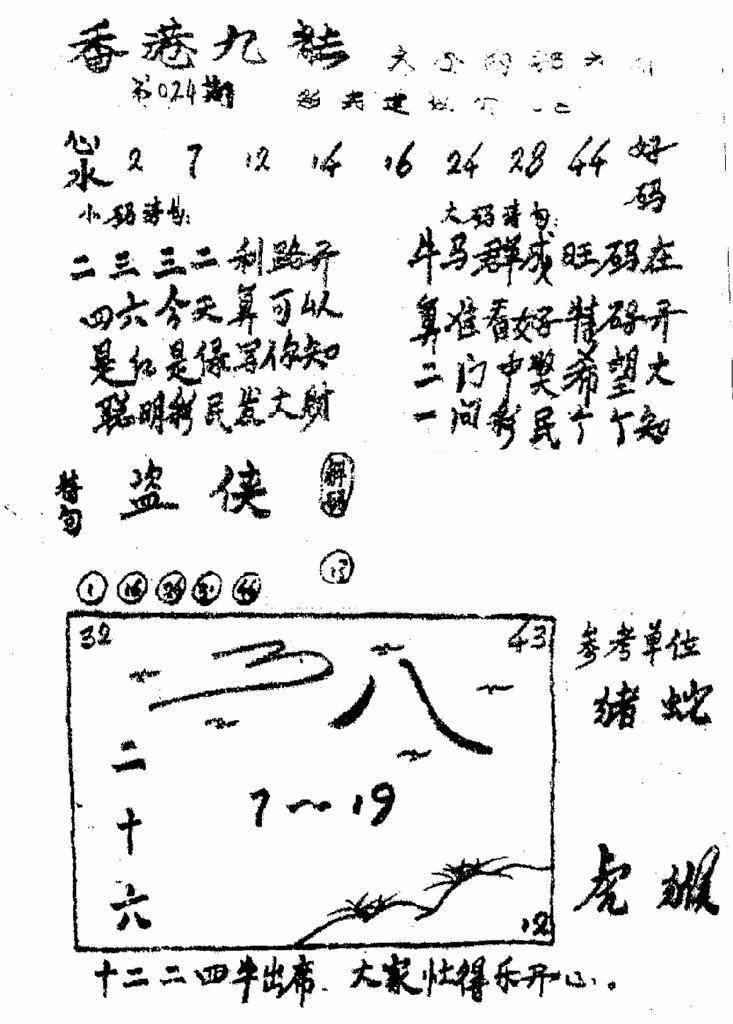 香港九龙
第024期
心水 2 7 12 14 16 24 28 44 好码
小码诗句:
大码诗句:
二三三二利路开
四六今天算可以
是红是绿写你知
聪明彩民发大财
牛马群成旺码在
算准看好特码开
二门中奖希望大
一问彩民个个知
特句
盗侠
解码
1 16
32
43
八
二十六
7~19
12
参考单位
猪 蛇
虎 猴
十二二四牛出席.大家忙得乐开心。